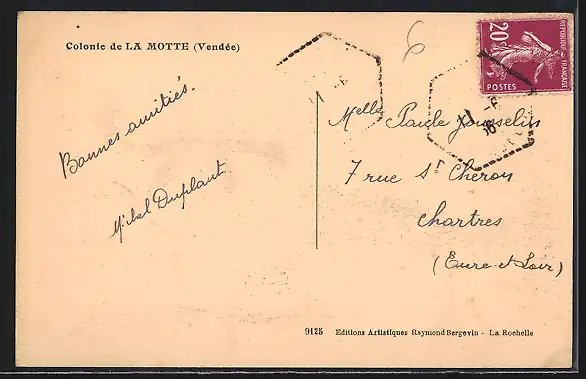 Colonie de LA MOTTE (Vendée)
6
REPUBLIQUE FRANÇAISE
20c
POSTES
Bonnes amitiés.
Michel Duplant
Melle Paule Jousselin
7 rue St Chéron
Chartres
(Eure et Loir)
9125 Editions Artistiques Raymond Bergevin - La Rochelle